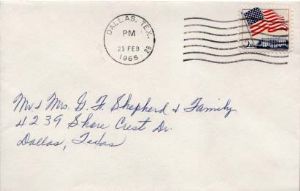 DALLAS, TEX.
PM
25 FEB
1965
Mr & Mrs. G. F. Shepherd & Family
4239 Shore Crest Dr.
Dallas, Texas